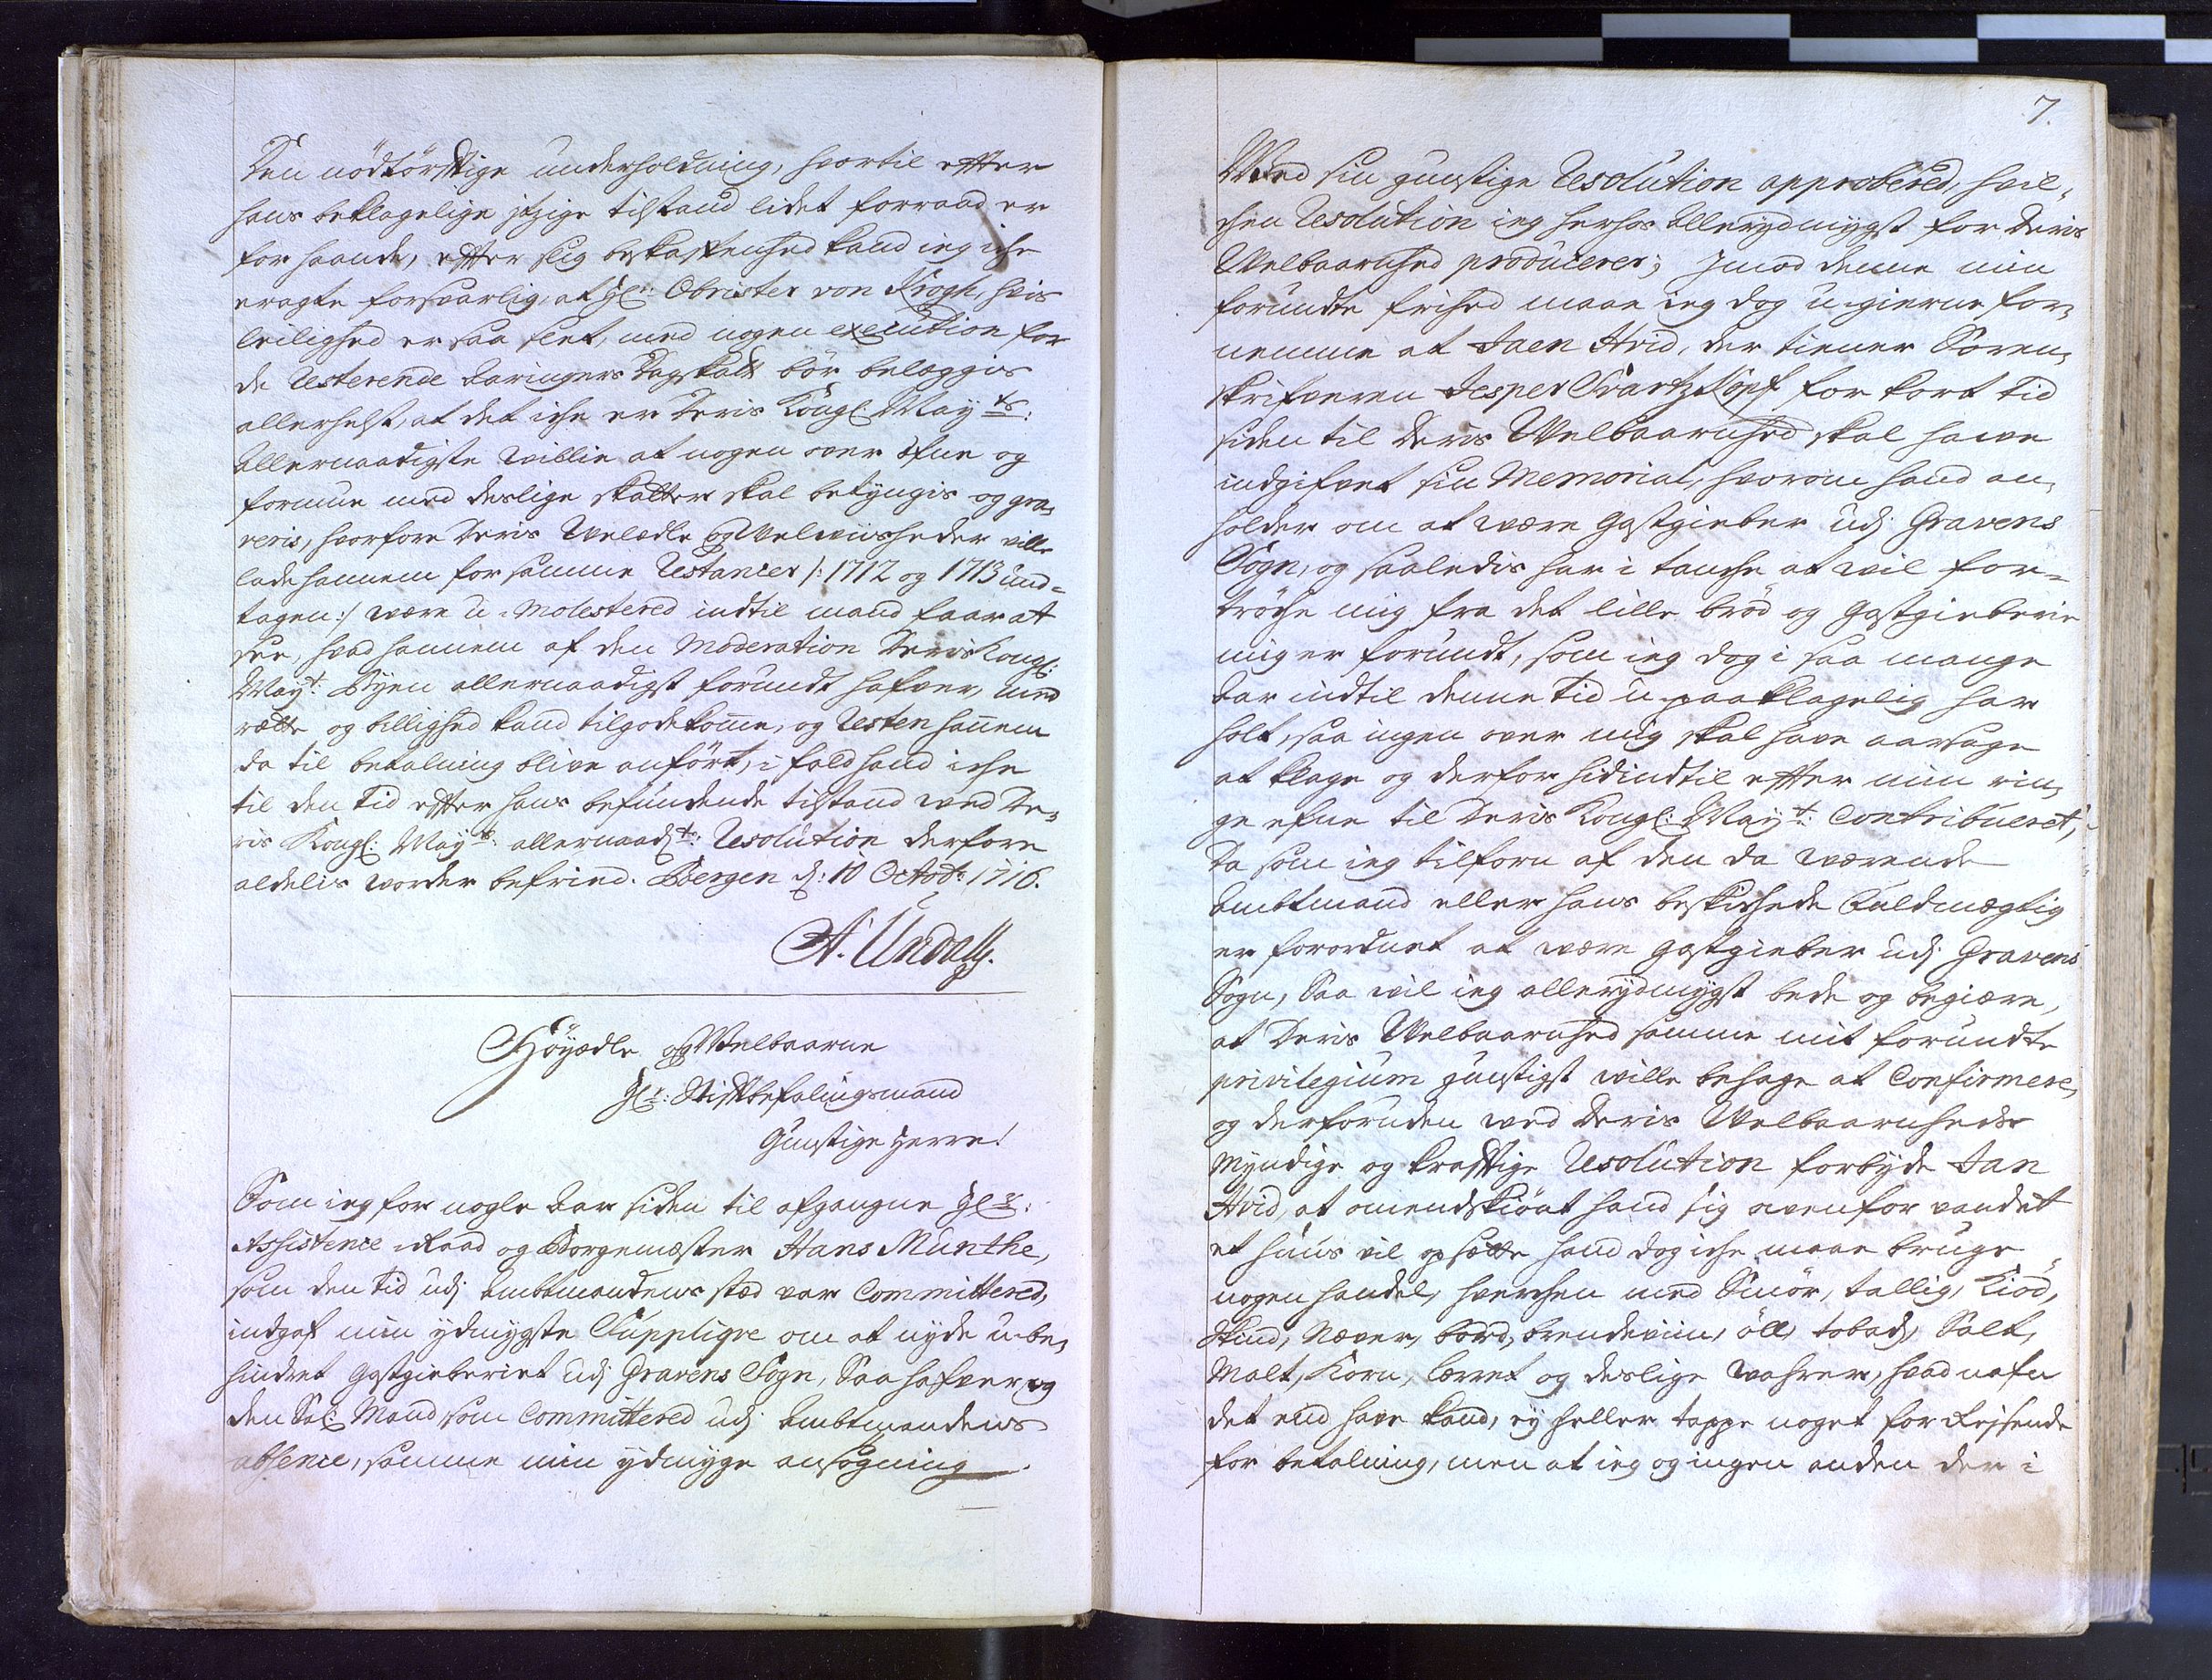 Den nödtörfftige underholdning, hvortil effter
hans beklagelige jtzige tilstand lidet forraad er
for haande, effter slig beskaffenhed kand ieg iche
eragte forsvarlig, at Hr: Obrister von Krogh, hvis
leilighed er saa slet, med nogen execution for
de Resterende Caringers Dagskatt bör beleggis
allerhelst, at det iche er Deris Kongl: May.ts:
Allernaadigste willie at nogen over Efne og
formue med deslige skatter skal betyngis og gra-
veris, hvorfore Deris Velædle og Velviisheder ville
lade hannem for samme Restancer /: 1712 og 1713 und-
tagen :/ være u-Molestered indtil mand faar at
see, hvad hannem af den Moderation Deris Kongl:
May.t: Byen allernaadigst forundt hafver, med
rætte og billighed kand tilgodekomme, og Resten hannem
da til betalning blive anfört, i fald hand iche
til den Tid effter hans befindende tilstand ved De-
ris Kongl: May.ts: allernaad.ste: Resolution derfore
aldelis worder befried. Bergen d: 10 Octobr: 1716.
A. Undall.
Höyædle og Welbaarne
Hr: Stifftbefalingsmand
Gunstige Herre!
Som ieg for nogle Aar siden til afgangne Hr:
Assistence Raad og Borgemester Hans Munthe,
som den Tid udj Ambtmandens sted var Committered,
indgaf min ydmygste Supplique om at nyde u-be-
hindret Gestgieberiet udj Gravens Sogn, Saa hafver og
den Sal: Mand som Committered udj Ambtmandens
absence, samme min ydmyge ansögning
7.
Med sin gunstige Resolution approbered, hvil-
chen Resolution ieg herhos Allerydmygst for Deris
Welbaarnhed producerer; Jmod denne min
forundte frihed maae ieg dog u-gierne for-
nemme at Jaen Hvid, der tiener Soren-
skrifveren Jesper Svartzkopf for kort Tid
siden til Deris Welbaarnhed skal have
indgifvet sin Memorial, hvorom hand an-
holder om at være Gestgieber udj Gravens
Sogn, og saaledis har i tanche at vil for-
tröche mig fra det lille bröd og Gestgieberie
mig er forundt, som ieg dog i saa mange
Aar indtil denne Tid u-paaklagelig har
holt, saa ingen over mig skal have aarsage
at klage og derfor hidindtil effter min rin-
ge efne til Deris Kongl: May.t: Contribueret,
Da som ieg tilforn af den da værende
Ambtmand eller hans beskichede Fuldmegtig
er forordnet at være Gestgieber udj Gravens
Sogn, Saa vil ieg allerydmygst bede og begiære,
at Deris Welbaarnhed samme mit forundte
privilegium gunstigst wille behage at Confirmere,
og derforuden ved Deris Welbaarnheds
Myndige og kraftige Resolution forbyde Jan
Hvid, at omendskiönt hand sig ovenfor vandet
et huus vil opsætte hand dog iche maae bruge
nogen handel, hverchen med Smör, tallig, Kiöd,
Skind, Næver, bord, brendeviin, öll, toback, Salt,
Malt, Korn, lerret og deslige vahrer, hvad nafn
det end have kand, ey heller tappe noget for Reisende
for betalning, men at ieg og ingen anden der i